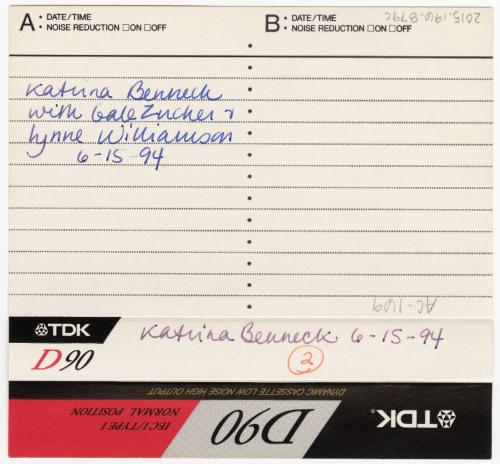 A: • DATE/TIME
• NOISE REDUCTION □ON □OFF
B: • DATE/TIME
• NOISE REDUCTION □ON □OFF
2015.196.879c
Katrina Benneck
with Gale Zucker &
Lynne Williamson
6-15-94
AC-169
TDK
D90
Katrina Benneck 6-15-94
2
DYNAMIC CASSETTE LOW NOISE HIGH OUTPUT
IECI/TYPE I
NORMAL POSITION
D90
TDK